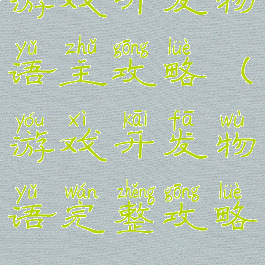 游戏开发物
yǔ zhǔ gōng lüè
语主攻略（
yóu xì kāi fā wù
游戏开发物
yǔ wán zhěng gōng lüè
语完整攻略